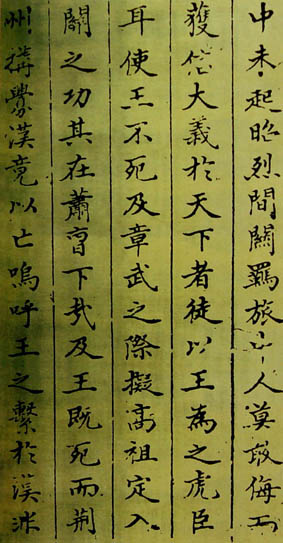 中未起昭烈間關羈旅人莫敢侮而
獲信大義於天下者徒以王為之虎臣
耳使王不死及章武之際擬高祖定入
關之功其在蕭曹下哉及王既死而荊
州搆釁漢竟以亡嗚呼王之繫於漢